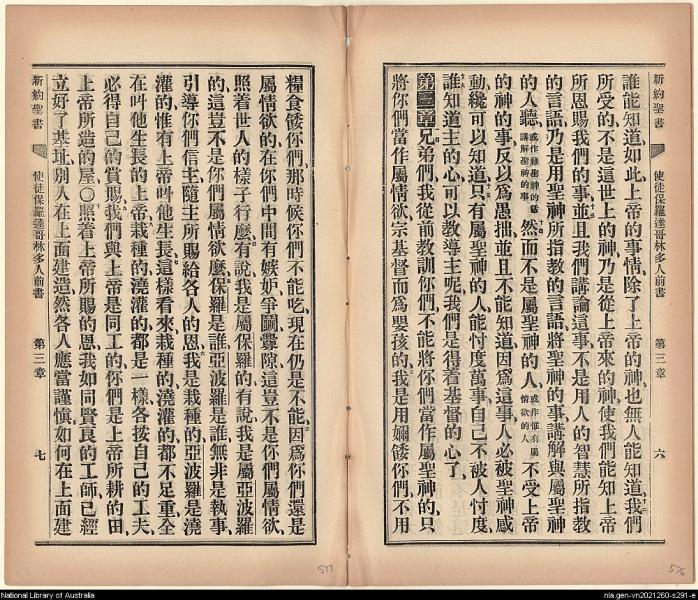 新約聖書 使徒保羅達哥林多人前書 第三章 六
誰能知道、如此上帝的事情、除了上帝的神、也無人能知道、我們
所受的、不是這世上的神、乃是從上帝來的神、使我們能知上帝
所恩賜我們的事、並且我們講論這事、不是用人的智慧所指教
的言語、乃是用聖神所指教的言語、將聖神的事、講解與屬聖神
的人聽、或作藉聖神的話講解聖神的事 然而不是屬聖神的人、或作惟有屬情欲的人 不受上帝
的神的事、反以爲愚拙、並且不能知道、因爲這事人必被聖神感
動、纔可以知道、只有屬聖神的人、能忖度萬事、自己不被人忖度、
誰知道主的心、可以教導主呢、我們是得着基督的心了、
第三章 兄弟們、我從前教訓你們、不能將你們當作屬聖神的、只
將你們當作屬情欲、宗基督而爲嬰孩的、我是用嬭餧你們、不用
糧食餧你們、那時候你們不能吃、現在仍是不能、因爲你們還是
屬情欲的、在你們中間有嫉妒爭鬭釁隙、這豈不是你們屬情欲、
照着世人的樣子行麼、有說我是屬保羅的、有說我是屬亞波羅
的、這豈不是你們屬情欲麼、保羅是誰、亞波羅是誰、無非是執事、
引導你們信主、隨主所賜給各人的恩、我是栽種的、亞波羅是澆
灌的、惟有上帝叫他生長、這樣看來、栽種的、澆灌的、都不足重、全
在叫他生長的上帝、栽種的、澆灌的、都是一樣、各按自己的工夫、
必得自己的賞賜、我們與上帝是同工的、你們是上帝所耕的田、
上帝所造的屋、○照着上帝所賜的恩、我如同賢良的工師、已經
立好了基址、別人在上面建造、然各人應當謹愼、如何在上面建
新約聖書 使徒保羅達哥林多人前書 第三章 七
577
576
National Library of Australia
nla.gen-vn2021260-s291-e